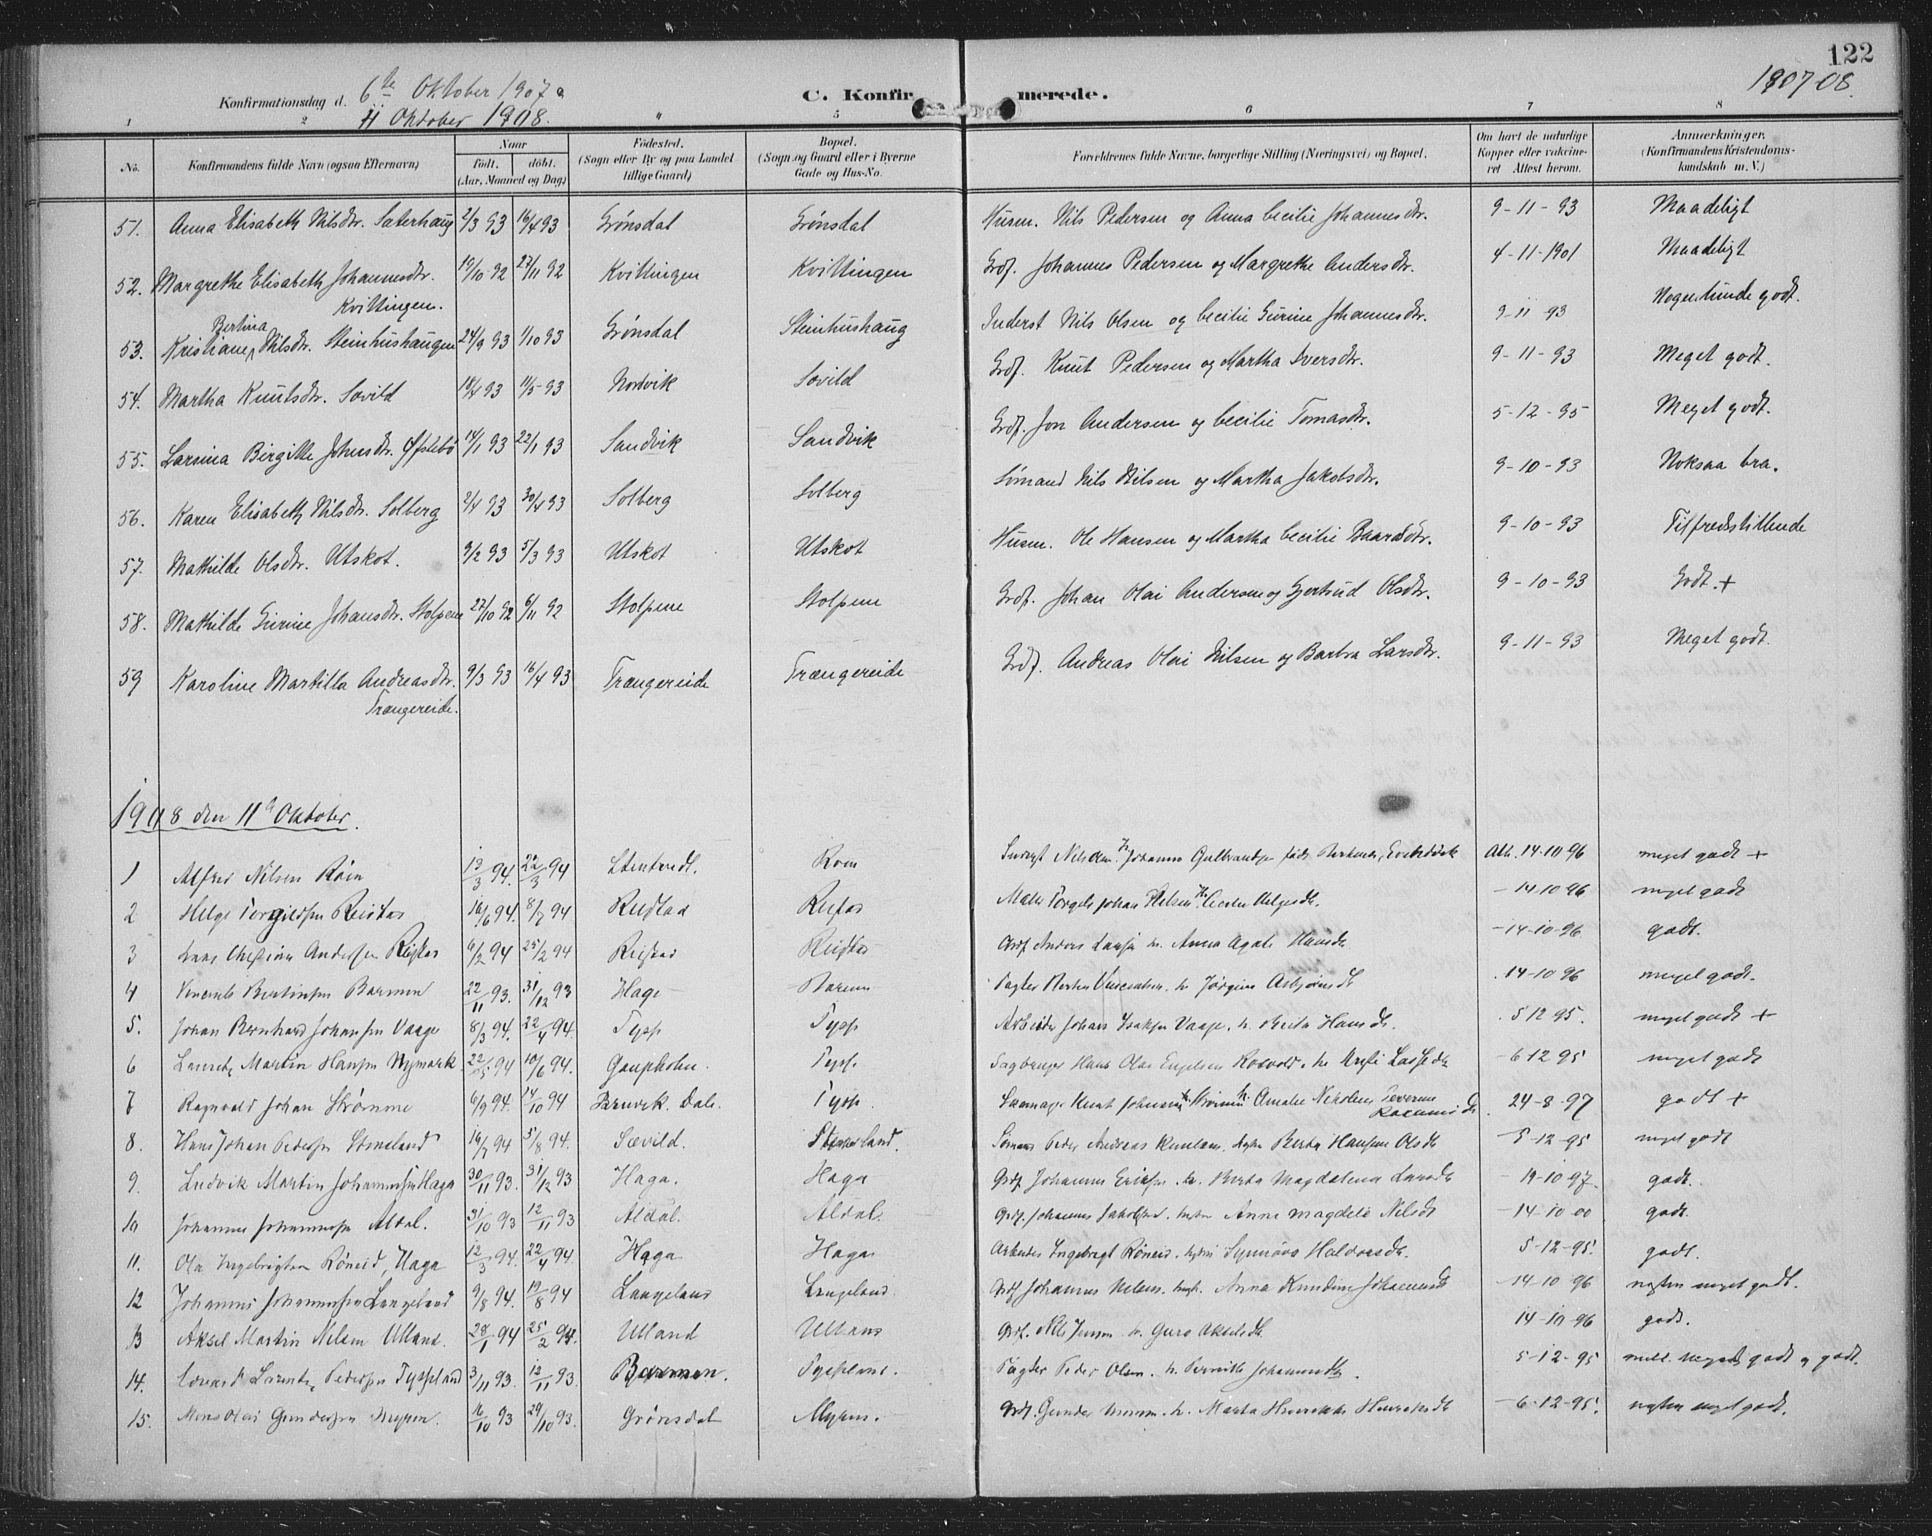 122
1907 08.
Konfirmationsdag d. 6te Oktober 1907 o
11 Oktober 1908.
C. Konfirmerede.
1 2 5 6 7 8
No. Konfirmandens fulde Navn (ogsaa Efternavn) Naar født. døbt. (Aar, Maaned og Dag) Fødested. (Sogn eller By og paa Landet tillige Gaard) Bopæl. (Sogn og Gaard eller i Byerne Gade og Hus-No. Forældrenes fulde Navne, borgerlige Stilling (Næringsvei) og Bopæl. Om havt de naturlige Kopper eller vakcineret Attest herom. Anmærkninger. (Konfirmandens Kristendomskundskab m. V.)
51. Anna Elisabeth Nilsdtr. Säterhaug 2/3 93 16/4 93 Grönsdal Grönsdal Husm. Nils Pedersen og Anna Cecilie Johannesdtr. 9-11-93 Maadeligt
52. Margrethe Elisabeth Johannesdtr. Kvittingen. 19/10 92 27/11 92 Kvittingen Kvittingen Grdf. Johannes Pedersen og Margrethe Andersdtr. 4-11-1901 Maadeligt
53. Kristiane Bertina Nilsdtr. Steinhushaugen 24/9 93 1/10 93 Grönsdal Steinhushaug Inderst Nils Olsen og Cecilie Gurine Johannesdtr. 9-11 93 Nogenlunde godt.
54. Martha Knutsdtr. Sævild 18/4 93 11/5-93 Nordvik Sævild Grdf. Knut Pedersen og Martha Iversdtr. 9-11-93 Meget godt.
55. Larsina Birgitte Johnsdtr. Øfstebø 14/1 93 22/1 93 Sandvik Sandvik Grdf. Jon Andersen og Cecilie Tomasdtr. 5-12-95 Meget godt.
56. Karen Elisabeth Nilsdtr. Solberg 2/4 93 30/4 93 Solberg Solberg Sømand Nils Nilsen og Martha Jakobsdtr. 9-10-93 Noksaa bra.
57. Mathilde Olsdtr. Utskot. 9/2 93 5/3 93 Utskot Utskot Husm. Ole Hansen og Martha Cecilie Baardsdtr. 9-10-93 Tilfredsstillende
58. Mathilde Gurine Johansdtr. Stolpene 27/10 92 6/11 92 Stolpene Stolpene Grdf. Johan Olai Andersen og Gjertrud Olsdtr. 9-10-93 Godt. +
59 Karoline Martilla Andreasdtr. Trængereide. 9/3 93 16/4 93 Trængereide Trængereide Grdf. Andreas Olai Nilsen og Barbra Larsdtr. 9-11-93 Meget godt
1908 den 11te Oktober.
1 Alfred Nilsen Röin 13/3 94. 22/3 94 Røin Att. 14-10 96 meget godt +
2 Helge Reistad 16/6 94. 8/7 94 Reistad Reistad -14 10 96 meget godt
3 Lars Christian Andersen Reistad 6/2 94 25/2 94 Reistad Reistad Grdf Anders Larsen h. Anna Agate Hansdtr -14-10-96 godt.
4 Bertinsen Barmen 22/11 93. 31/12 93 Hage Barmen Jørgine Asbjørnsdtr .14-10 96 meget godt.
5. Johan Bernhard Johansen Vaage 8/3 94. 22/4 94. Tyss Tyss Arbeider Johan Isaksen Vaage. h. Brita Hansdtr .5 12 95. meget godt +
6 Lauritz Martin Hansen Nymark 22/5 94 10/6 94. Gaupholm. Tyss. Hans Olai Engelsen -6 12 95 meget godt
7 Ragnvald Johan Strömme 6/9 94. 14/10 94 Dale. Tyss. 24-8-97 godt +
8. Hans Johan Pedersen 16/7 94 5/8 94. Sævild. Berta Hansine Olsdtr -5-12-95 meget godt
9. Ludvik Martin Johannesen Haga 30/11 93. 31/12 93 Haga. Haga Grdf Johannes Eriksen. h. Berta Magdalena Larsdtr -14-10 97. godt.
10 Johannes Johannessen Aldal. 31/10 93 12/11 93 Aldal. Aldal. Grdf. Johannes Anna Magdele Nilsdtr -14-10 00 godt.
11. Ola Ingebrigtsen Röneid, Haga 12/3 94. 22/4 94. Haga Haga Arbeider Ingebrigt Röneid. Synnöva Haldorsdtr. 5-12-95. godt.
12 Johannes Johannessen Langeland 9/8 94. 19/8 94 Langeland Langeland. Grdf Johannes Nilsen. Anna Knudine Johannesdtr -14-10 96 næsten meget godt.
13 Aksel Martin Nilsen Ulland. 28/1 94 25/2 94. Ulland Ulland Grdf. Nils Jensen. h. Guro Akseldtr. 14-10-96 godt.
14. Lauritz Pedersen Tyssland 3/11 93. 12/11 93. Barmen. Tyssland. Pagter Peder Olsen. h. Pernille Johannesdtr. 5-12-95 mell. meget godt og godt.
15. Mons Olai Gundersen Myren 16/10 93 29/10 93. Grönsdal Myren. Grdf. Gunder Monsen. h. Marta Henrikke Henriksdtr -6-12-95. næsten meget godt.